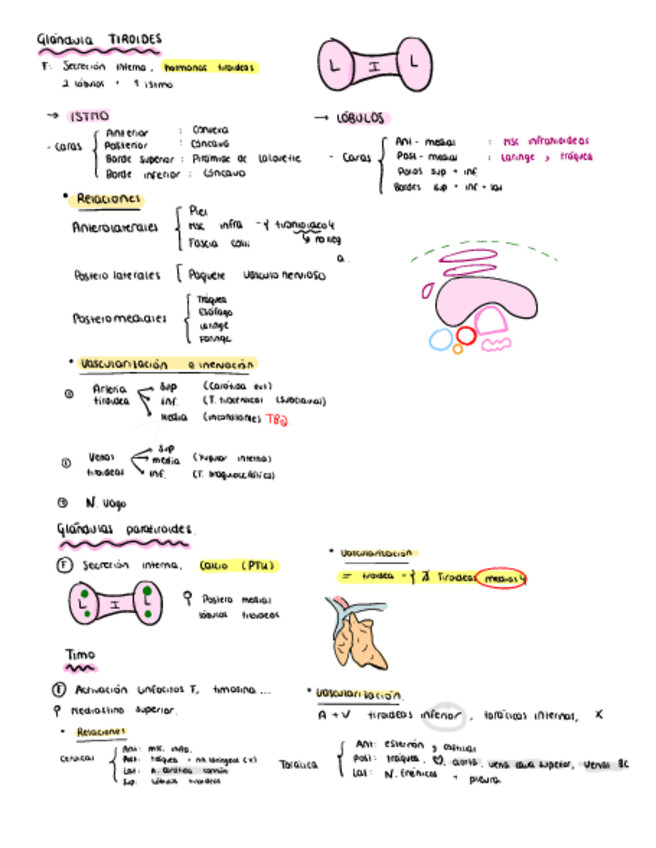 Glándula TIROIDES
F: Secreción interna, hormonas tiroideas
2 lóbulos + 1 istmo
L I L
→ ISTMO
- caras
Anterior : Convexa
Posterior : Cóncava
Borde superior : Pirámide de Lalouette
Borde inferior : Cóncavo
→ LÓBULOS
- Caras
Ant - medial : msc infrahioideos
Post - medial : Laringe y tráquea
Polos sup + inf
Bordes sup + inf + lat
• Relaciones
Anterolaterales
Piel
Msc infra -{ tirohioideo }
Fascia
Postero laterales [ Paquete vasculo nervioso
Posteromediales
Tráquea
Esófago
Laringe
Faringe
• Vascularización e inervación
Arteria tiroidea
Sup (Carótida ext)
inf. (T. tirocervical (subclavia))
Media (inconstante) TBQ
Venas tiroideas
Sup
media (Yugular interna)
inf. (T. braquiocefálico)
N. Vago
Glándulas paratiroides.
F Secreción interna, Calcio (PTH)
L I L
Postero medial
lóbulos tiroideos
• Vascularización
= tiroidea - { Tiroideas medias }
Timo
F Activación linfocitos T, timosina ...
Mediastino superior.
• Relaciones
Cervical
Ant: msc. infra.
Post: tráquea + nn laríngeos (X)
Lat: a. carótida común
Sup: lóbulos tiroideos
• Vascularización.
A + V tiroideas inferior, torácicas internas, X
Torácica
Ant: esternón y costillas
Post: tráquea, ♡, aorta, vena cava superior, venas BC
Lat: N. Frénicos + pleura